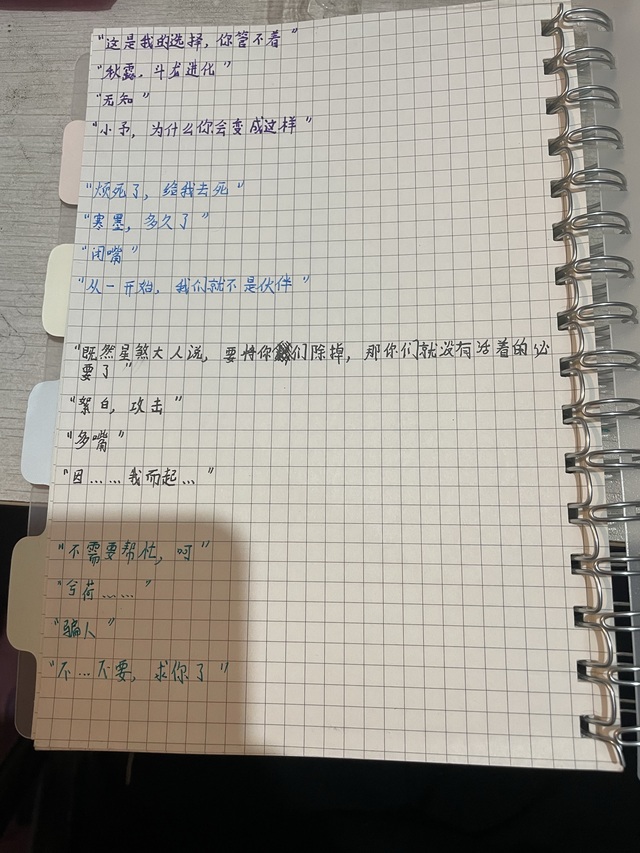 "这是我的选择，你管不着"
"秋露，斗龙进化"
"无知"
"小予，为什么你会变成这样"
"烦死了，给我去死"
"寒墨，多久了"
"闭嘴"
"从一开始，我们就不是伙伴"
"既然星煞大人说，要将你们除掉，那你们就没有活着的必
要了"
"絮白，攻击"
"多嘴"
"因……我而起…"
"不需要帮忙，呵"
"兮荷……"
"骗人"
"不…不要，求你了"